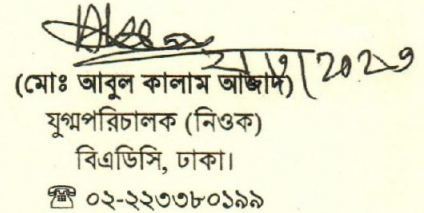 (মোঃ আবুল কালাম আজাদ)
যুগ্মপরিচালক (নিওক)
বিএডিসি, ঢাকা।
☎ ০২-২২৩৩৮০১৯৯